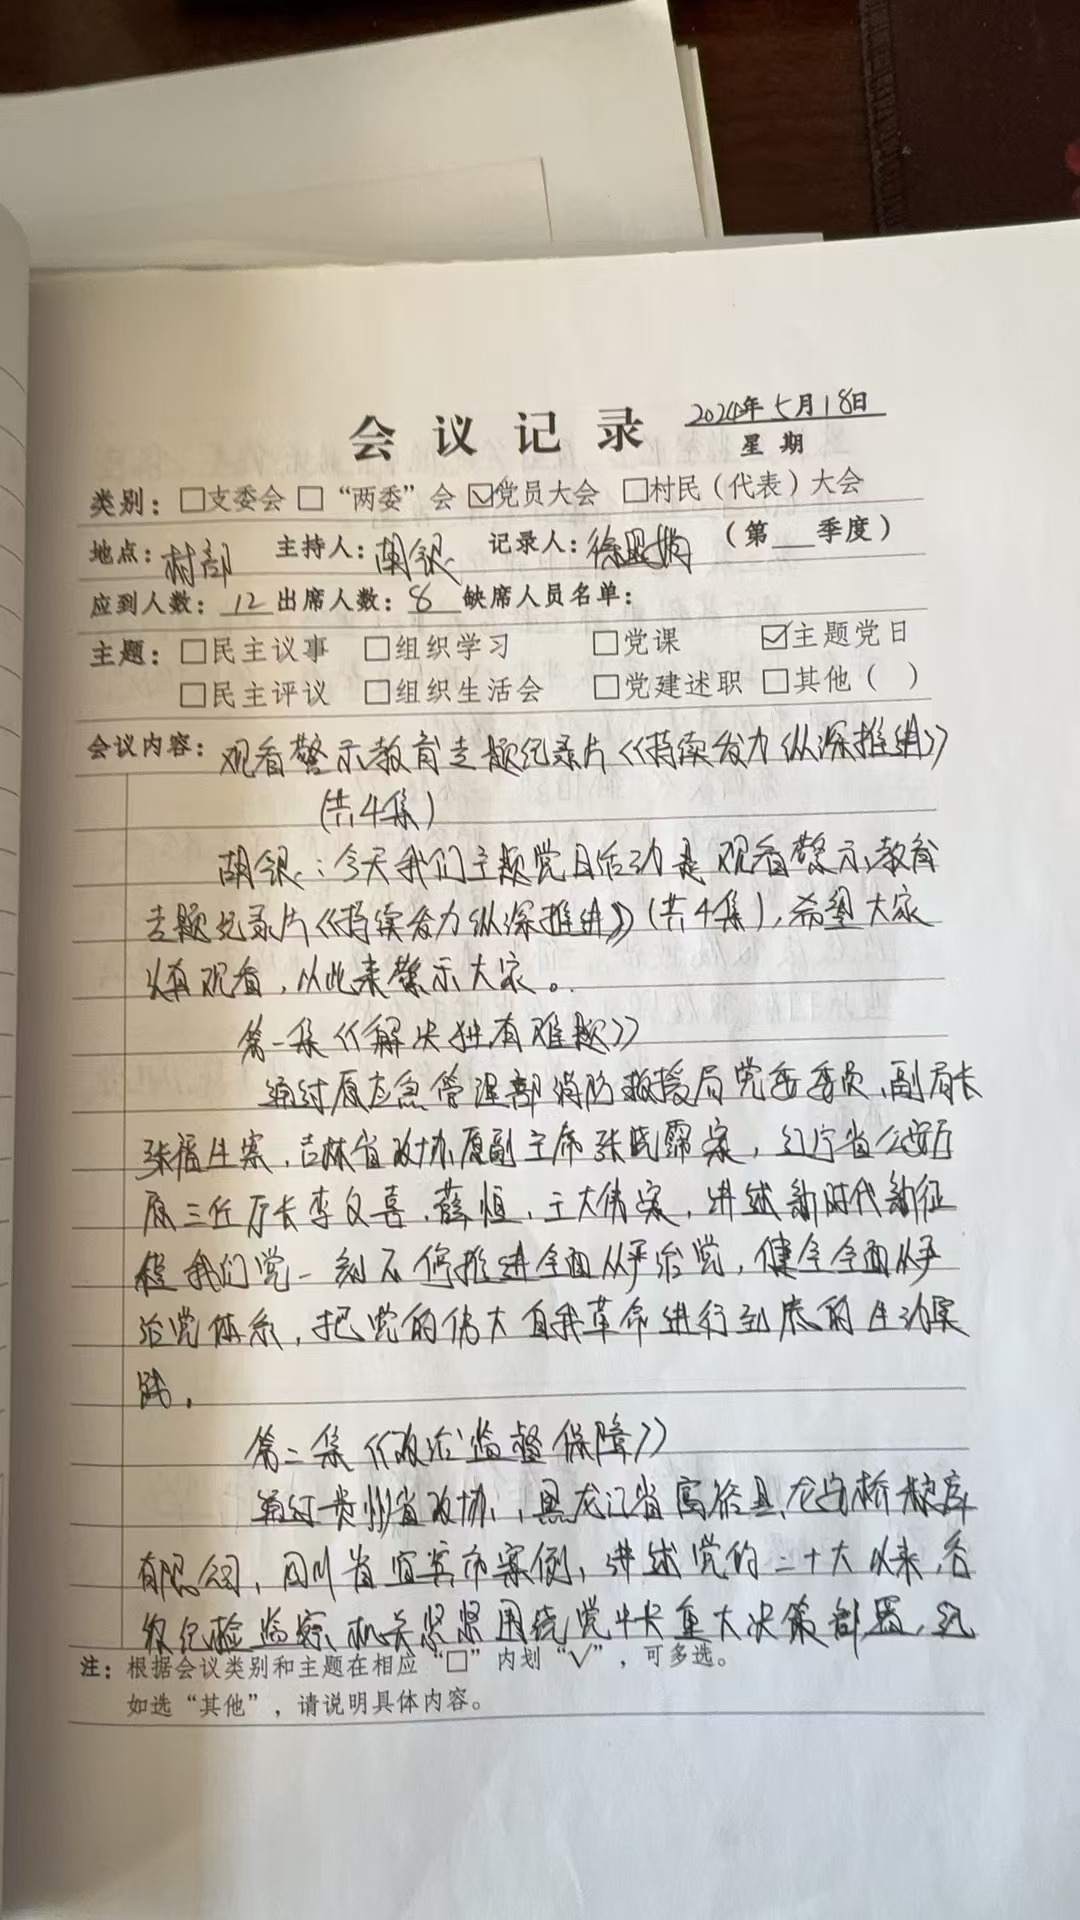 会议记录 2024年5月18日
星期
类别：□支委会 □“两委”会 ☑党员大会 □村民（代表）大会
地点：村部 主持人：胡银 记录人：徐 （第 季度）
应到人数：12 出席人数：8 缺席人员名单：
主题：□民主议事 □组织学习 □党课 ☑主题党日
□民主评议 □组织生活会 □党建述职 □其他（ ）
会议内容：观看警示教育专题纪录片《持续发力 纵深推进》
（共4集）
胡银：今天我们主题党日活动是观看警示教育
专题纪录片《持续发力 纵深推进》（共4集），希望大家
观看，以此来警示大家。
第一集《解决独有难题》
通过原应急管理部消防救援局党委委员、副局长
张福生案，吉林省政协原副主席张晓霈案，辽宁省公安厅
原三任厅长李文喜、薛恒、王大伟案，讲述新时代新征
程我们党一刻不停推进全面从严治党，健全全面从严
治党体系，把党的伟大自我革命进行到底的生动实
践。
第二集《政治监督保障》
通过贵州省政协，黑龙江省富裕县龙安桥粮库
有限公司，四川省宜宾市案例，讲述党的二十大以来，各
级纪检监察机关紧紧围绕党中央重大决策部署，纪
注：根据会议类别和主题在相应“□”内划“√”，可多选。
如选“其他”，请说明具体内容。